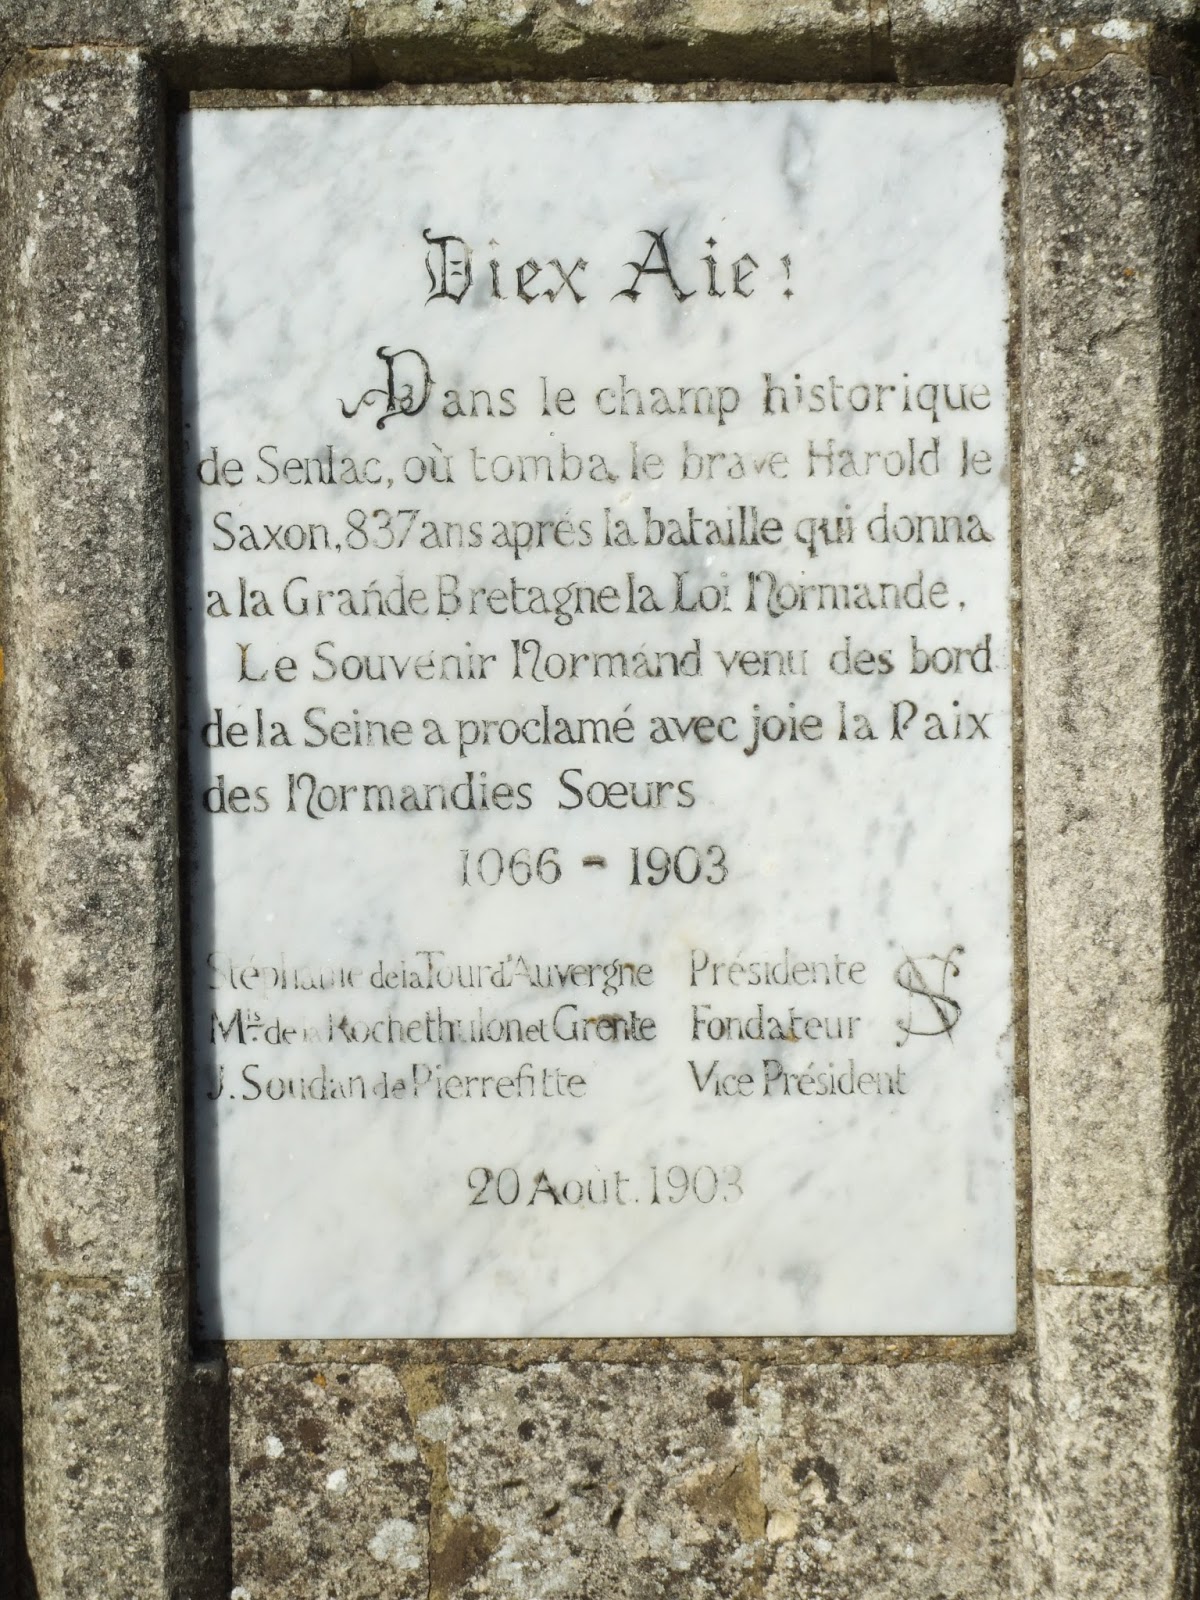 Diex Aie !
Dans le champ historique
de Senlac, où tomba le brave Harold le
Saxon, 837 ans aprés la bataille qui donna
a la Grande Bretagne la Loi Normande,
Le Souvenir Normand venu des bord
de la Seine a proclamé avec joie la Paix
des Normandies Sœurs
1066 - 1903
Stéphanie de la Tour d'Auvergne Présidente SN
Mis. de la Rochethulon et Grente Fondateur
J. Soudan de Pierrefitte Vice Président
20 Août. 1903